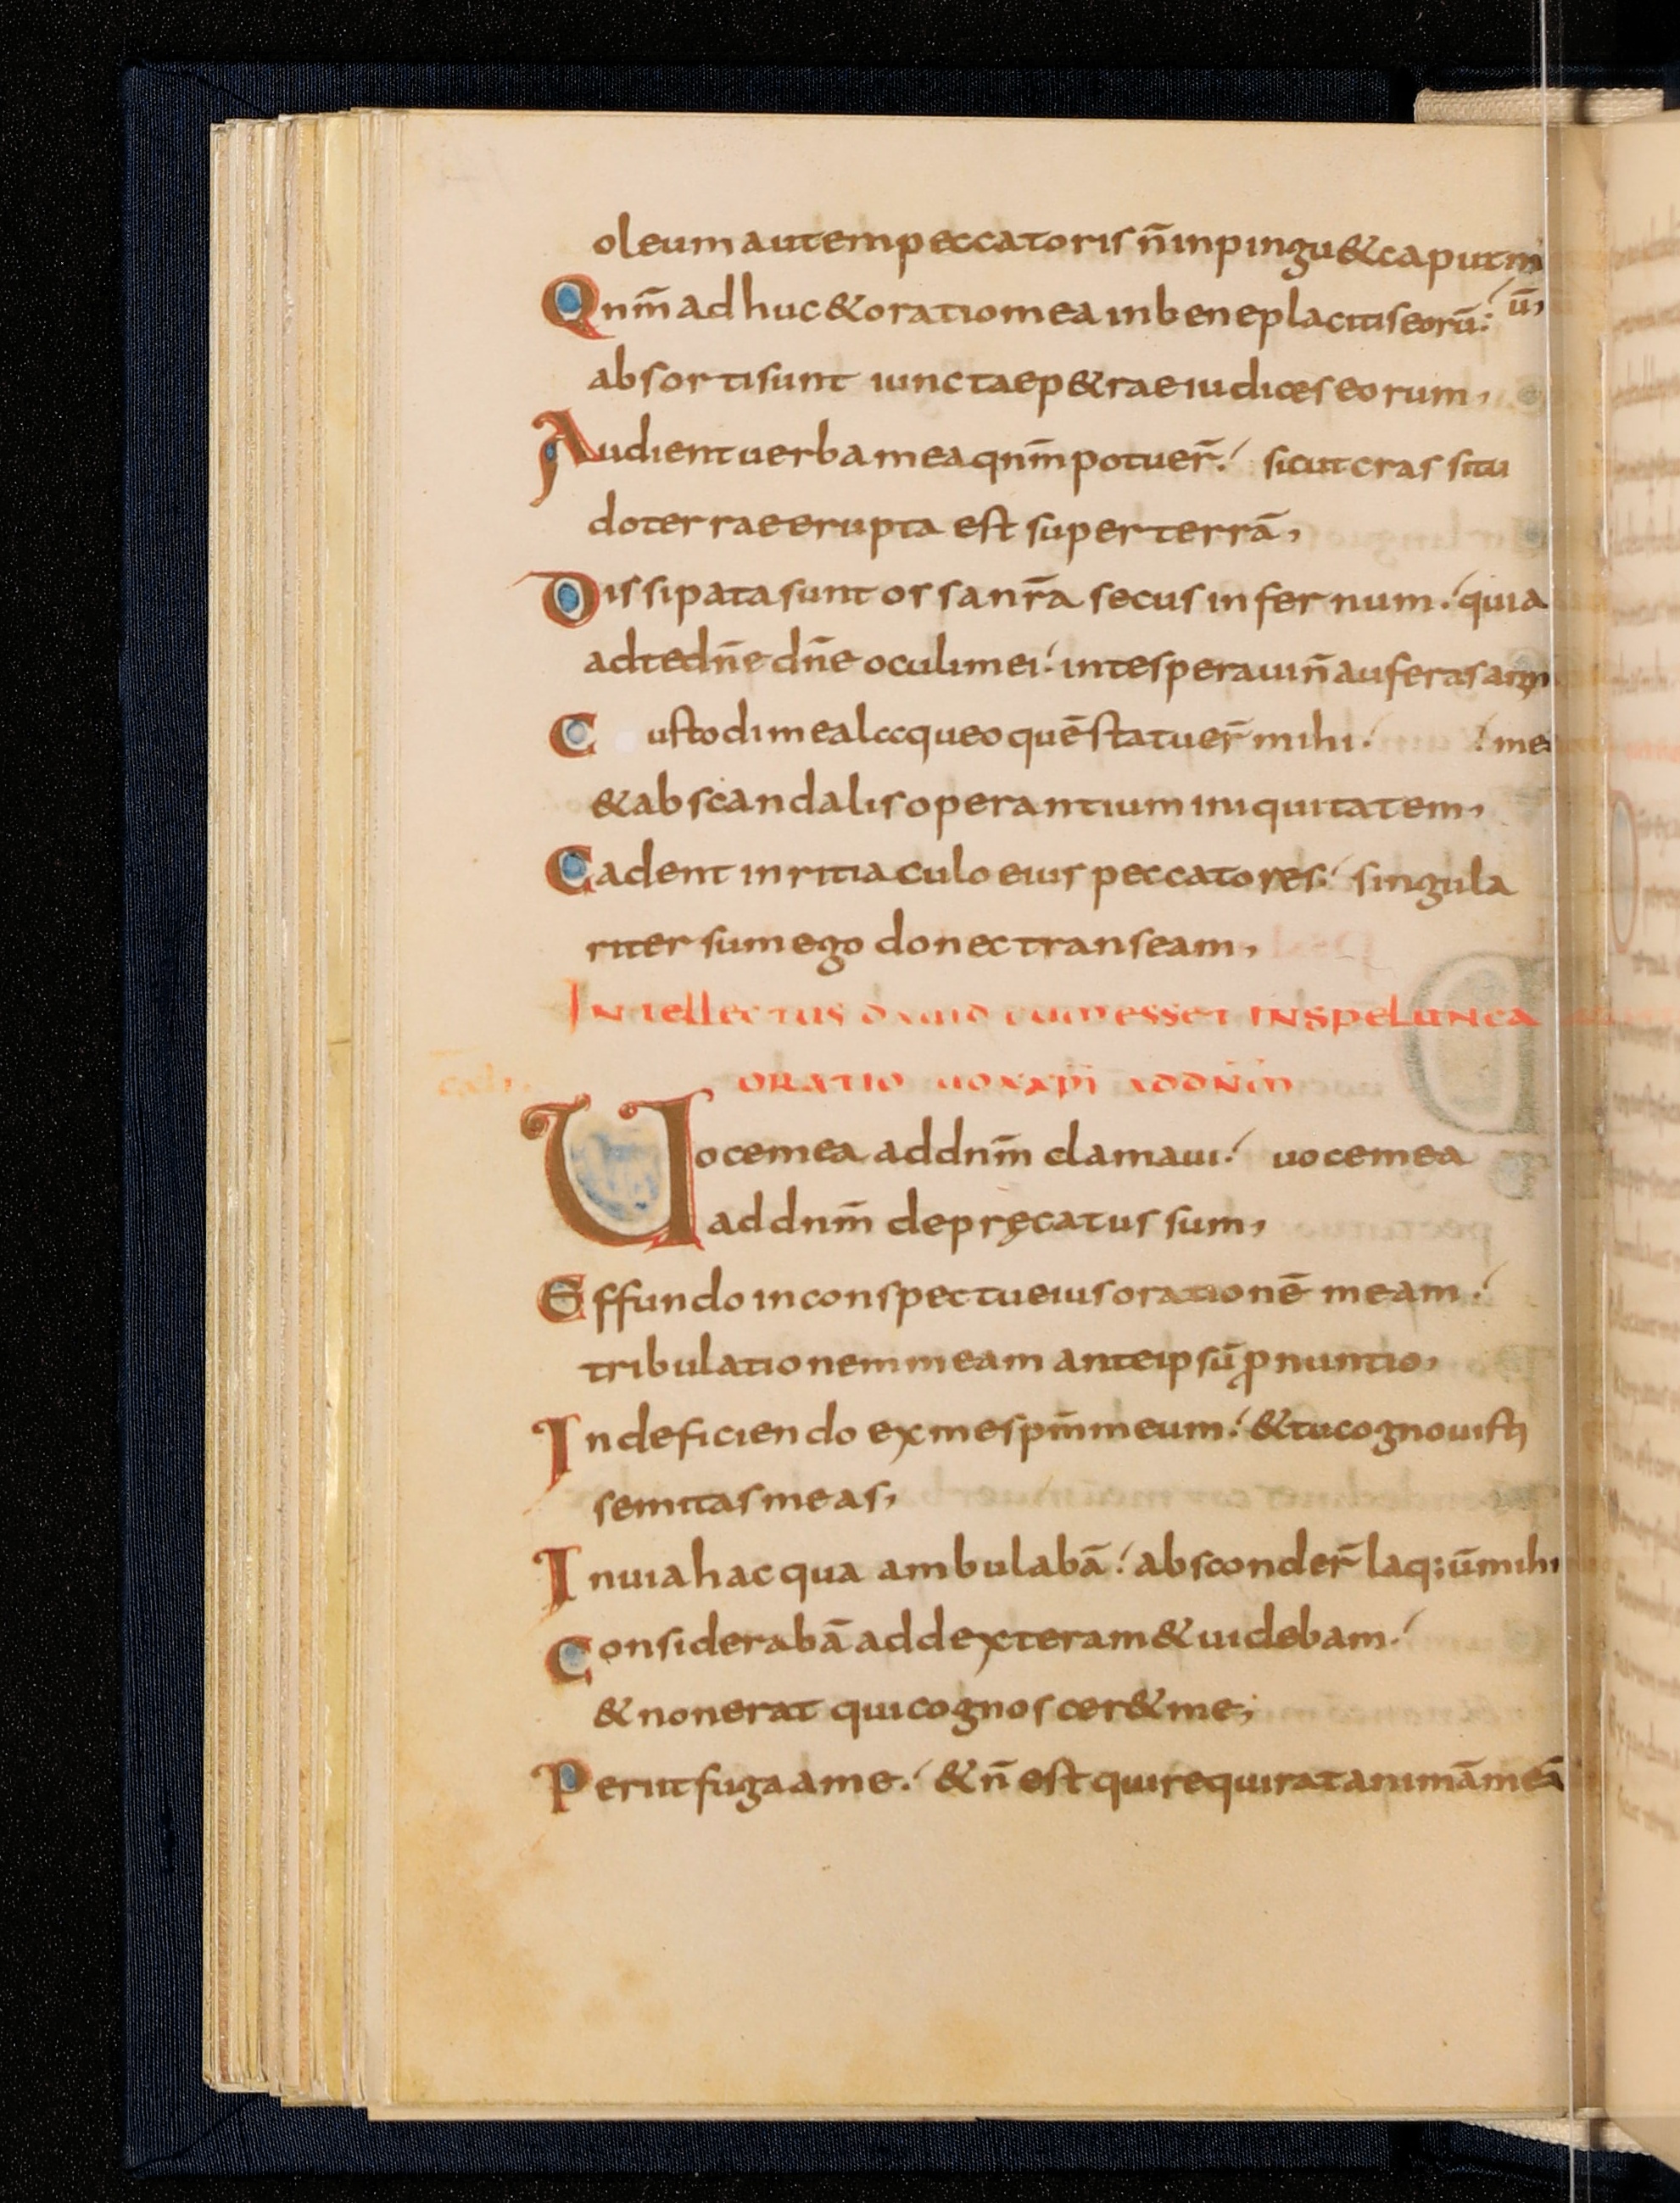 oleum autem peccatoris n̄ inpingu& caput m
Qnm̄ ad huc & oratio mea in beneplacitis eorū: ū,
absorti sunt iunctae p&rae iudices eorum,
Audient uerba mea qnm̄ potuer̄. sicut crassitu
do terrae erupta est super terrā,
Dissipata sunt ossa nr̄a secus infernum. quia
ad te dn̄e dn̄e oculi mei. in te speraui n̄ auferas anim
Custodi me a laqueo quē statuer̄ mihi. me
& ab scandalis operantium iniquitatem,
Cadent in ritiaculo eius peccatores. singula
riter sum ego donec transeam,
Intellectus dauid cum esset in spelunca
oratio
Uoce mea ad dnm̄ clamaui. uoce mea
ad dnm̄ depręcatus sum,
Effundo in conspectu eius orationē meam.
tribulationem meam ante ipsū ꝓnuntio,
In deficiendo ex me spm̄ meum. & tu cognouisti
semitas meas,
In uia hac qua ambulabā. absconder̄ laq;ū mihi
Considerabā ad dexteram & uidebam.
& non erat qui cognoscer& me;
Periit fuga a me. & n̄ est qui requirat animā meā